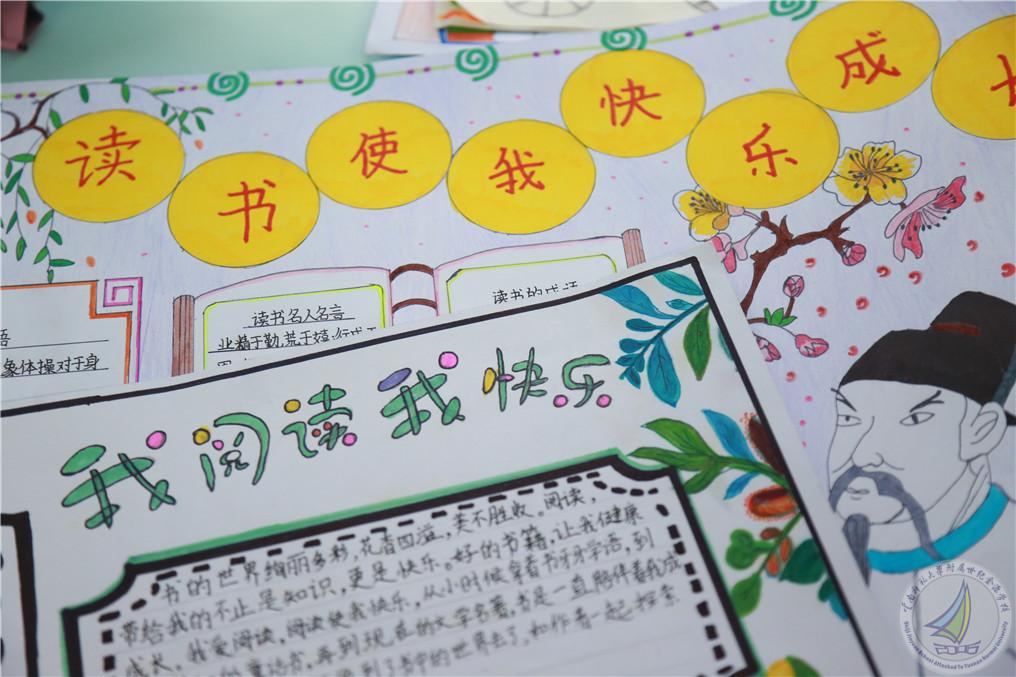 读书使我快乐成
读书名人名言
业精于勤,荒于嬉;行成于
读书的成语
象体操对于身
我阅读我快乐
书的世界绚丽多彩,花香四溢,美不胜收。阅读,
带给我的不止是知识,更是快乐。好的书籍,让我健康
成长。我爱阅读,阅读使我快乐,从小时候拿着书牙牙学语,到
再到现在的文学名著,书是一直陪伴着我成
书中的世界去了,和作者一起探索
云南师范大学附属世纪金源学校